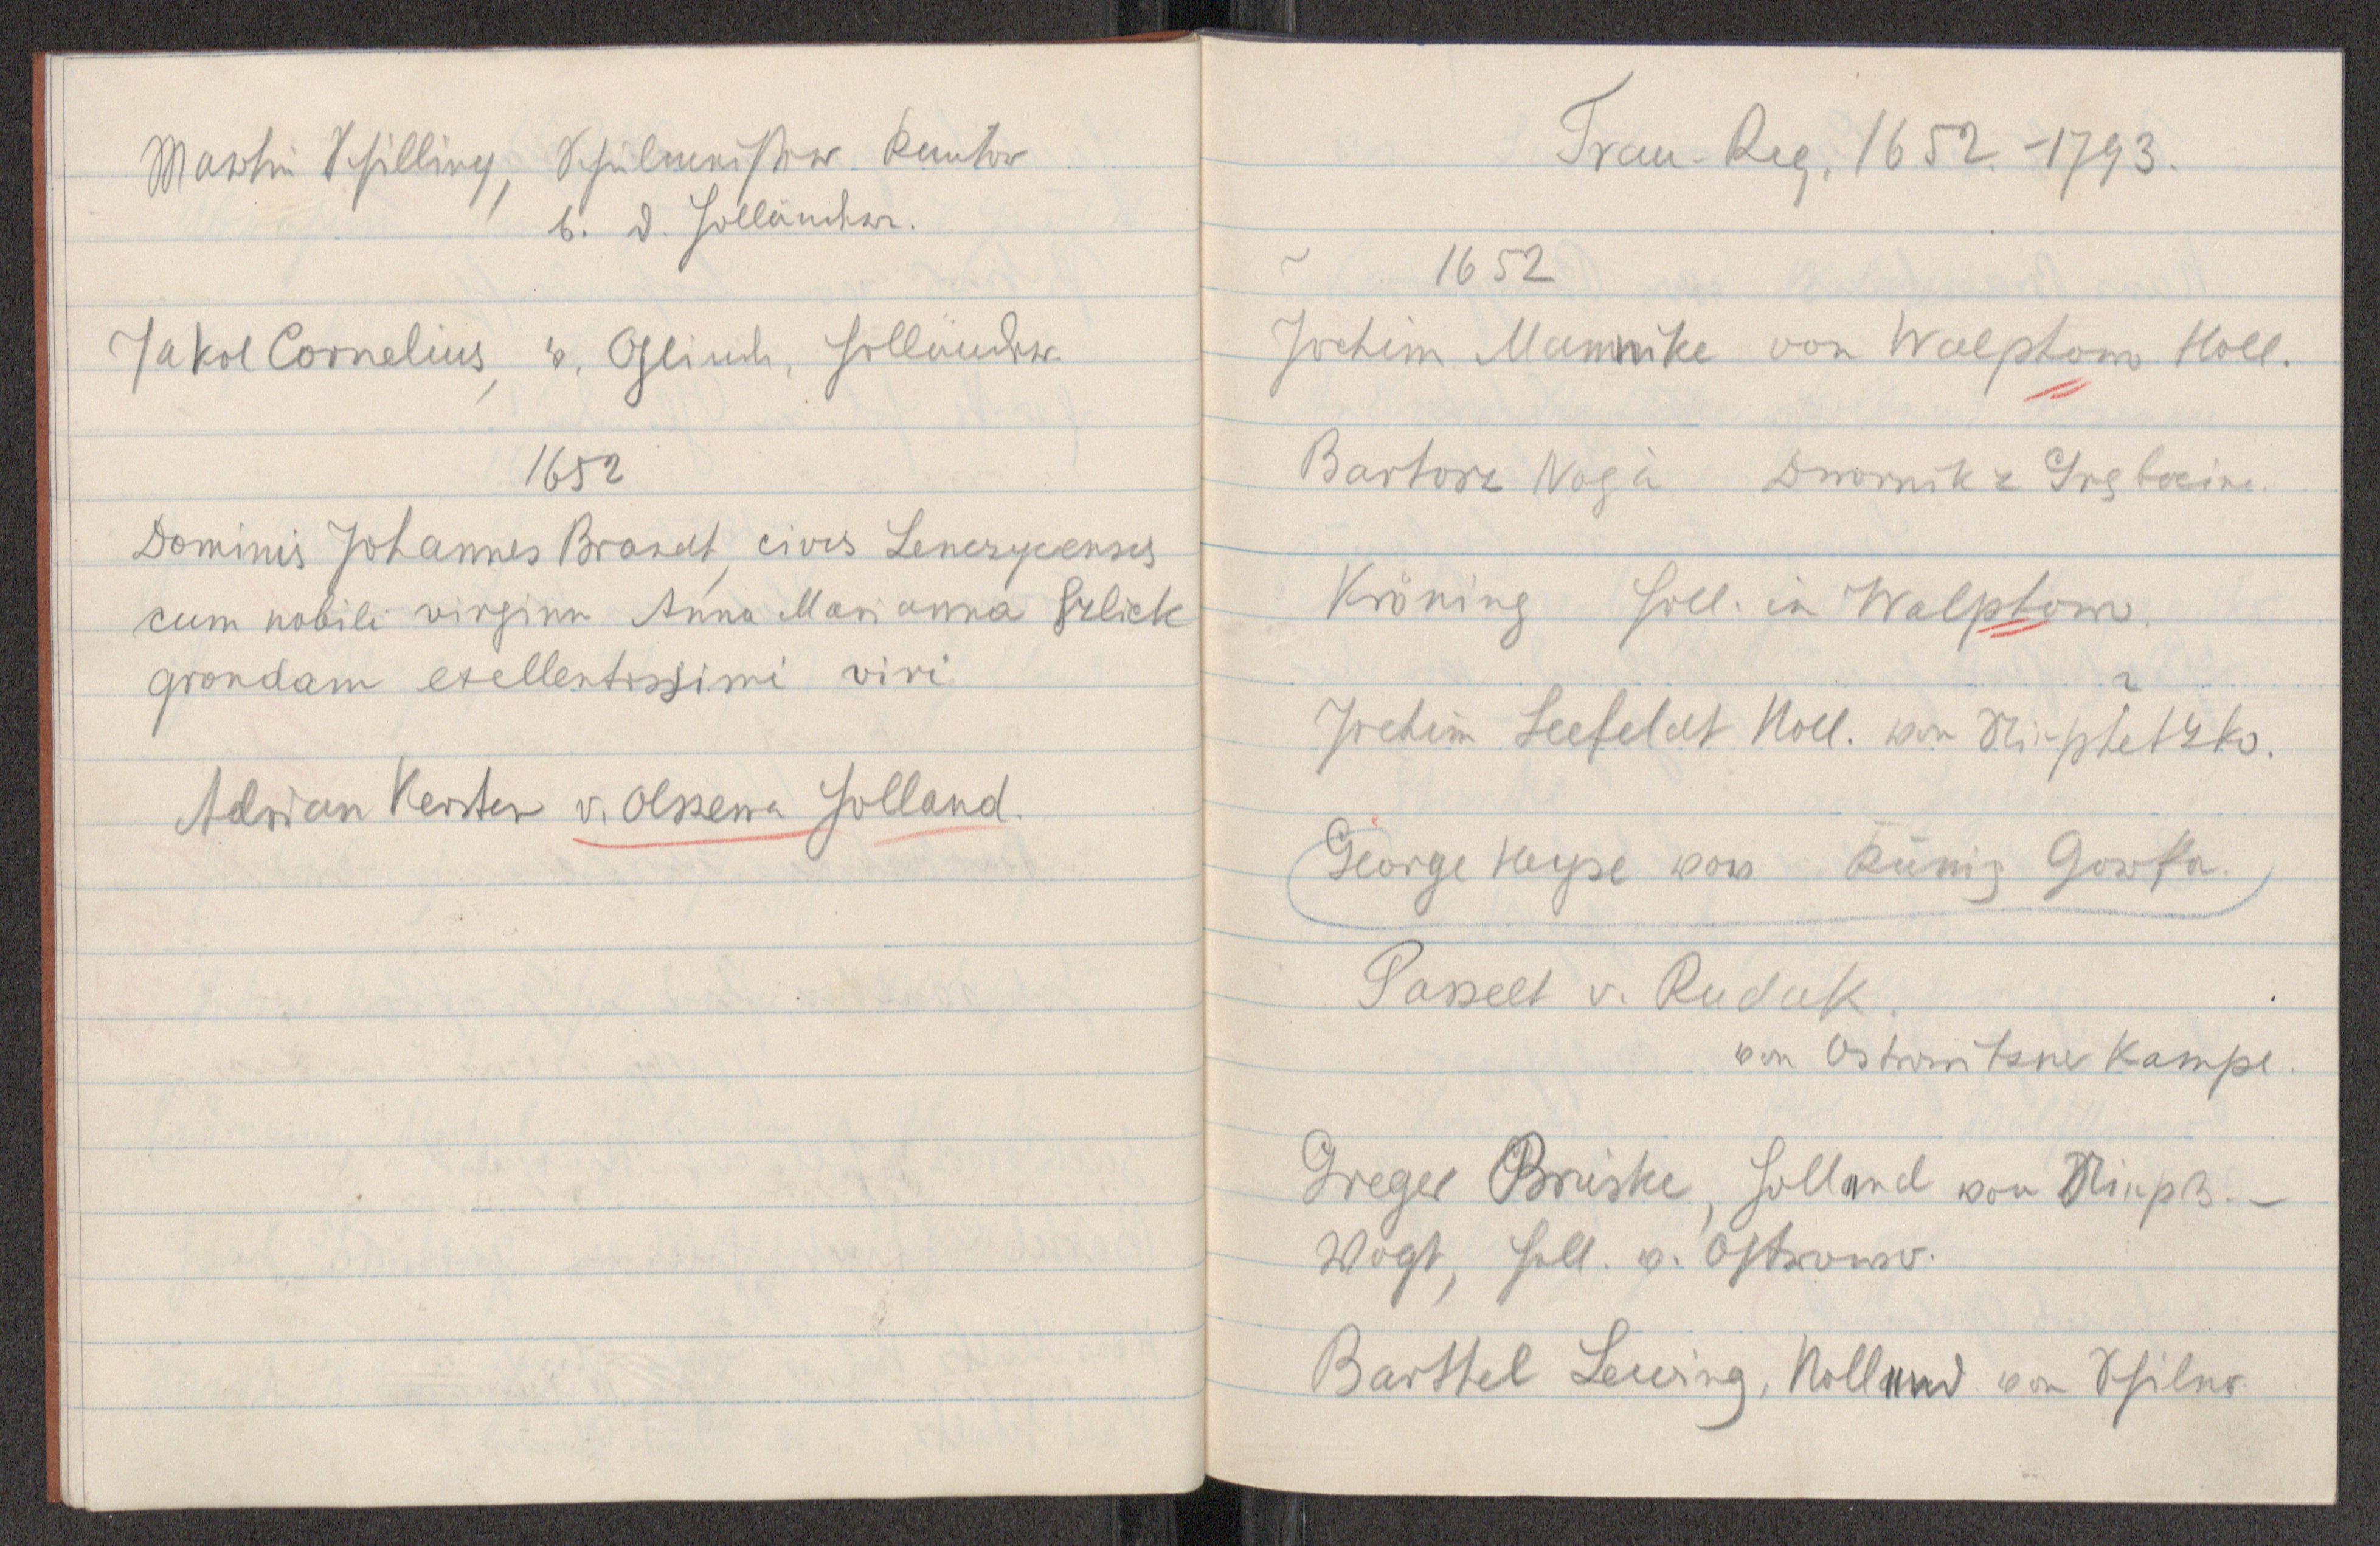 Martin Schilling, Schulmeister Kantor
b. d. Holländern.
Jakob Cornelius, v. Glinde, Holländer
1652
Dominis Johannes Brandt, cives Lenczycenses
cum nobili virginn Anna Marianna Erlick
grondam exellentissimi viri
Adrian Kersten v. Olssewa Holland.
Trau-Reg. 1652.-1793.
1652
Jochim Mannike von Walphow Holl.
Bartorz Noga Dwornik z
Kröning Holl. in Walphow.
Jochim Seefeldt Holl. von
George Heyse von König Gorka.
Passelt v. Rudak.
von Ostrowitzner Kampe.
Greger Brüske, Holland von
Vogt, Holl. v. Ostrowo.
Barthel Lewing, Holland von Schilno